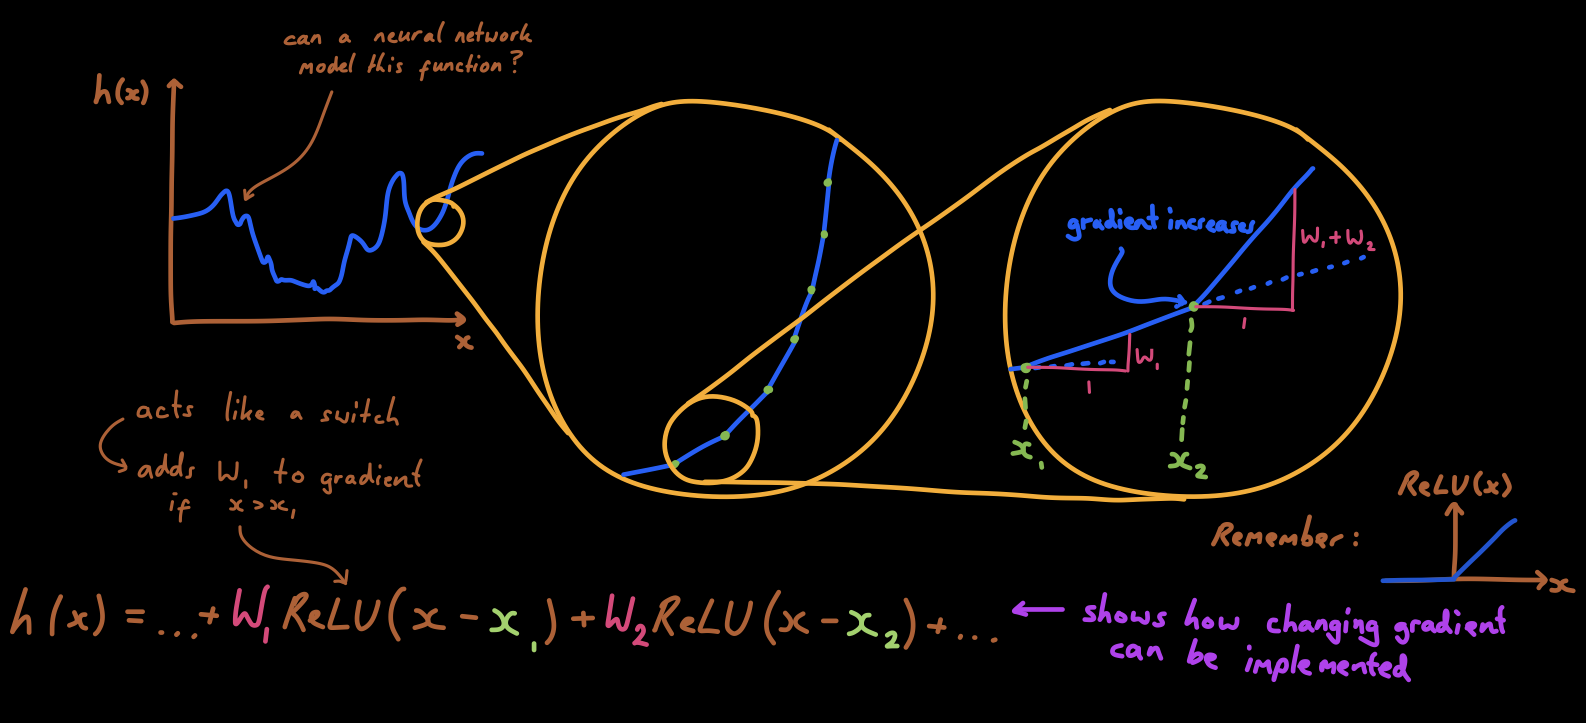 can a neural network
model this function?
h(x)
x
gradient increases
W₁+W₂
1
W₁
1
x₁
x₂
acts like a switch
adds W₁ to gradient
if x>x₁
ReLU(x)
Remember:
x
h(x) = ...+W₁ReLU(x-x₁)+W₂ReLU(x-x₂)+...
shows how changing gradient
can be implemented